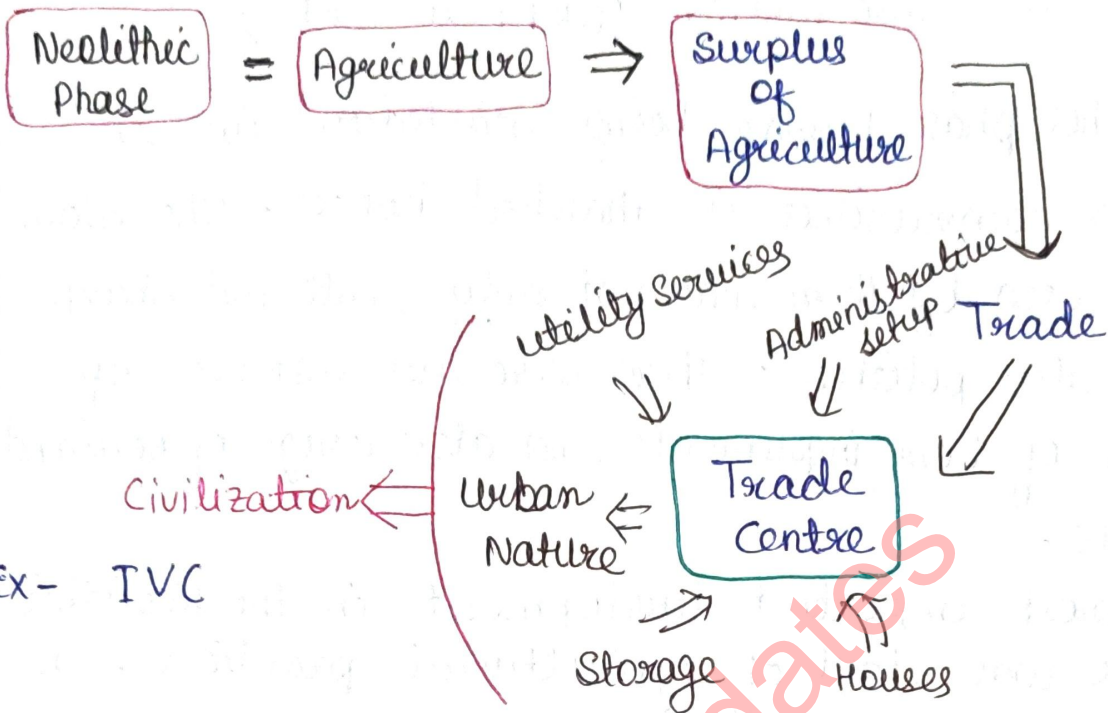 Neolithic
Phase
=
Agriculture
⇒
Surplus
of
Agriculture
utility services
Administrative
setup
Trade
Trade
Centre
Urban
Nature
Civilization
Ex- IVC
Storage
Houses
dates